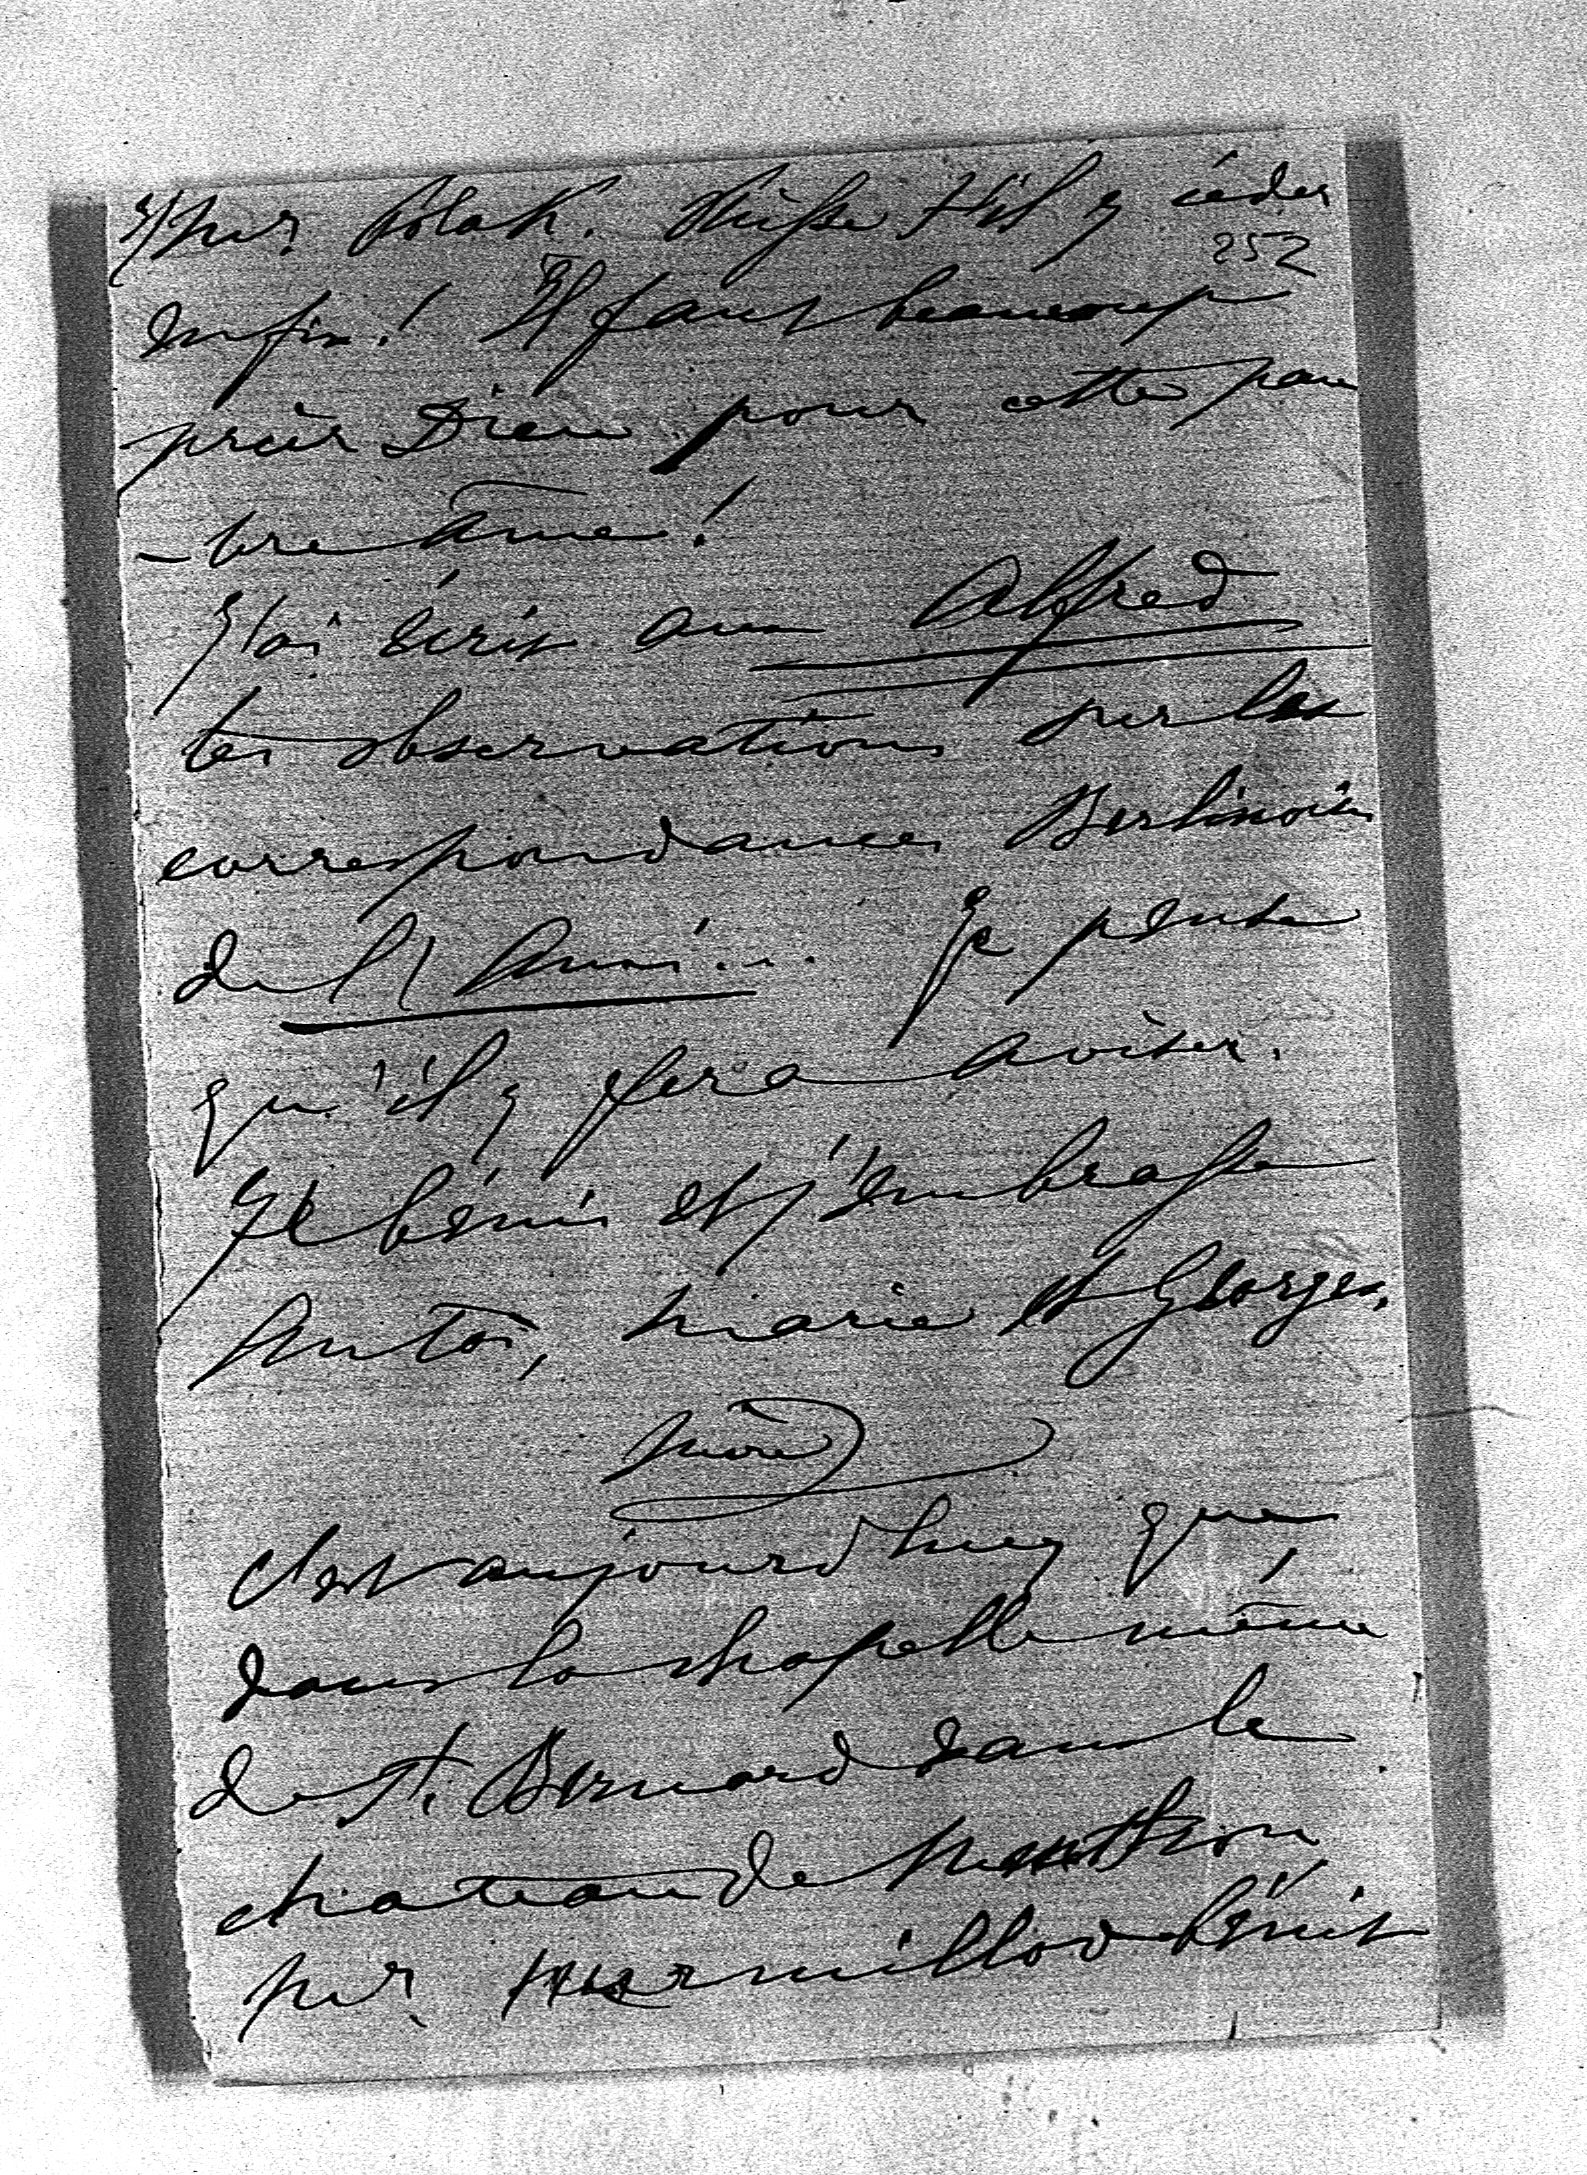 Mgr Polak. Puisse-t-il y céder
252
enfin! Il faut beaucoup
prier Dieu pour cette pau
-vre âme!
J'ai écrit à Alfred
tes observations sur les
correspondances Berlinoises
de l'Ami... Je pense
qu'il y fera aviser.
Je bénis et j'embrasse
Anto, Marie et Georges.
Mère
C'est aujourd'huy que,
dans la chapelle même
de St. Bernard dans le
chateau de Menthon
Mgr Mermillod bénit